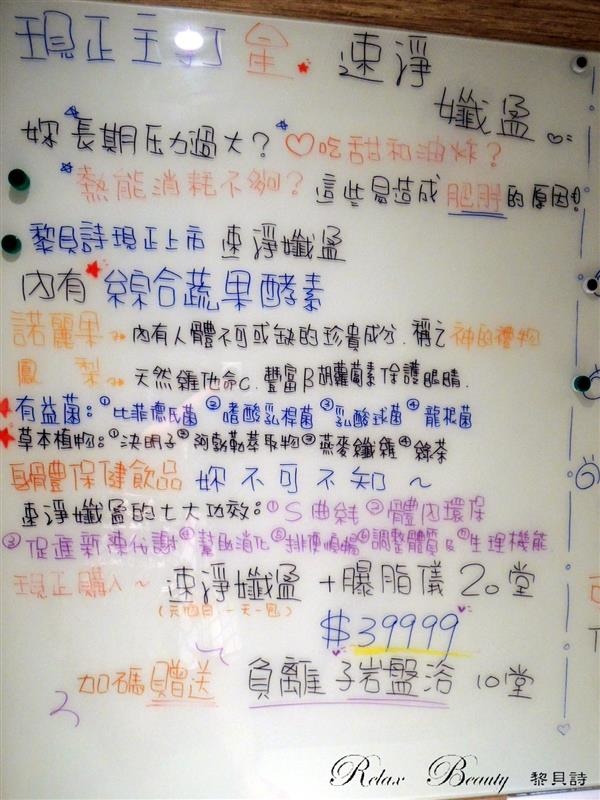 現正主打星 速淨
孅孟
妳長期压力過大？♡吃甜和油炸？
熱能消耗不夠？這些易造成肥胖的原因！
黎貝詩現正上市 速淨孅孟
內有 綜合蔬果酵素
諾麗果～內有人體不可或缺的珍貴成分．稱之神的禮物
鳳 梨～天然維他命C．豐富β胡蘿蔔素保護眼睛．
★有益菌：①比菲德氏菌 ②嗜酸乳桿菌 ③乳酸球菌 ④龍根菌
★草本植物：①決明子②阿勃勒萃取物③燕麥纖維④綠茶
身體保健飲品 妳不可不知～
速淨孅孟的七大功效：①S曲線②體內環保
③促進新陳代謝④幫助消化⑤排便順暢⑥調整體質&⑦生理機能
現正購入～ 速淨孅孟＋爆脂儀20堂
$39999
加碼贈送 負離子岩盤浴 10堂
Relax Beauty 黎貝詩